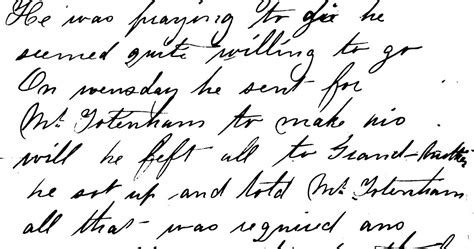 He was praying to die he
seemed quite willing to go
On wensday he sent for
Mr. Totenham to make his
will he left all to Grand-mother
he sot up and told Mr. Totenham
all that was required and